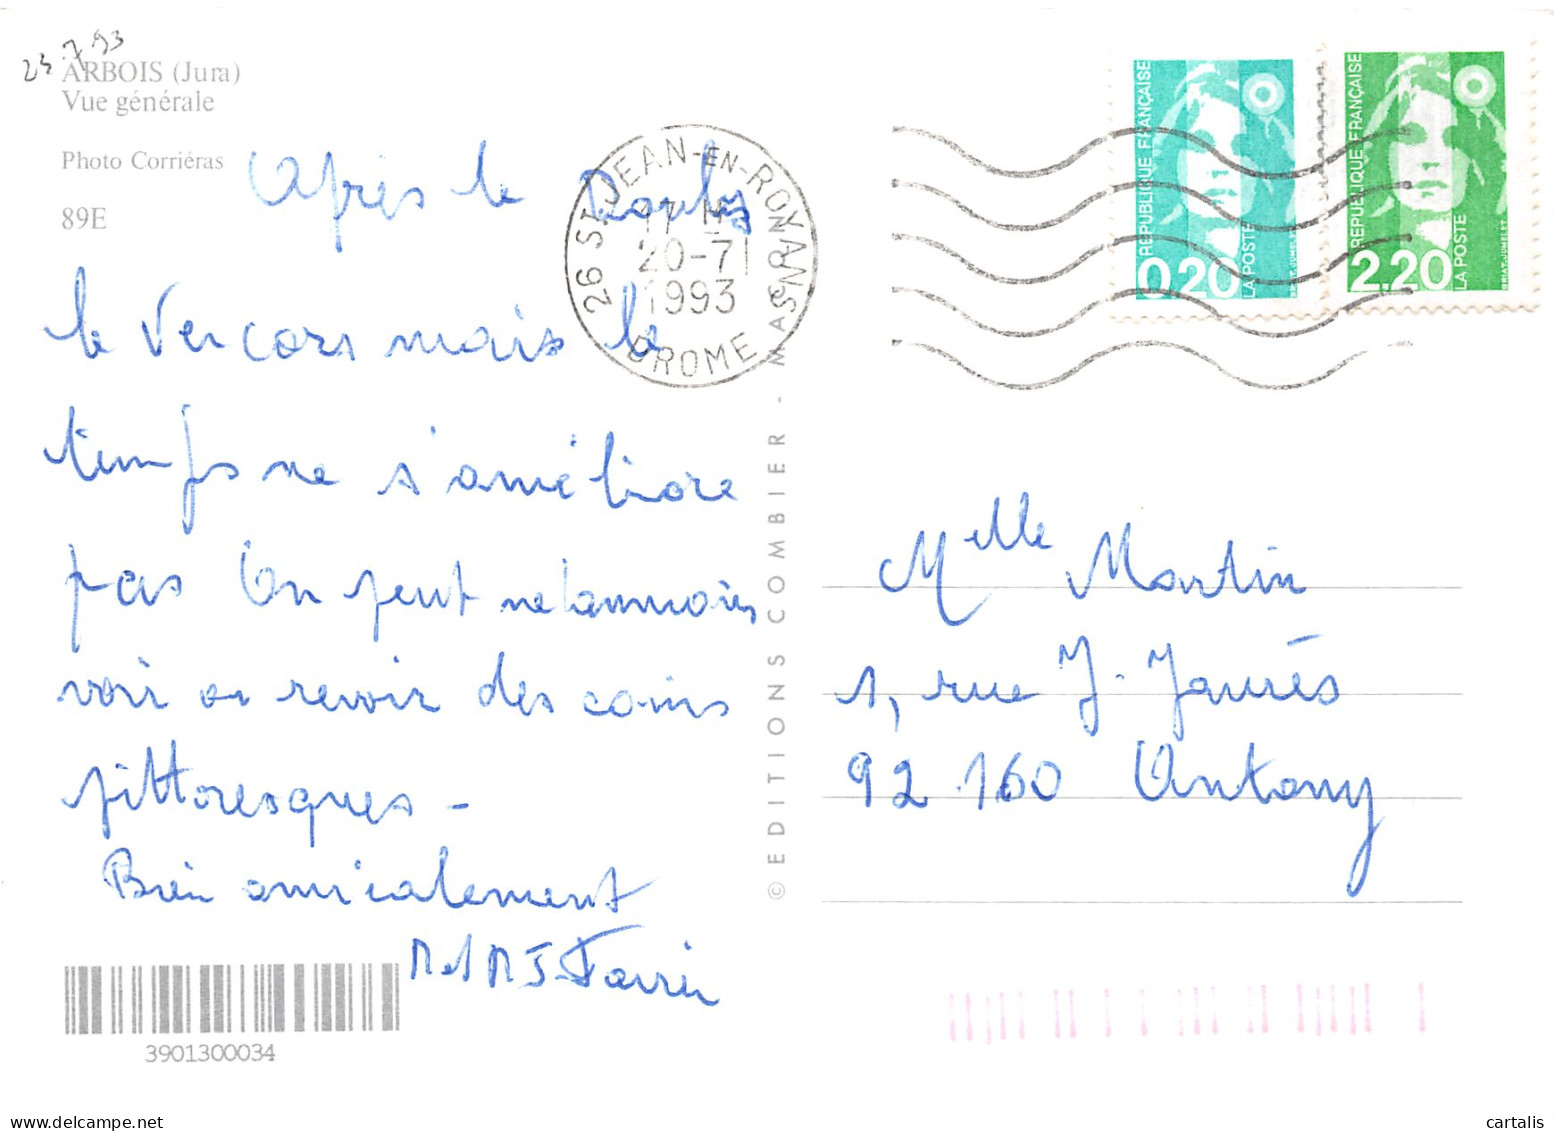 23.7.93
ARBOIS (Jura)
Vue générale
Photo Corriéras
89E
Après le Doubs
le Vercors mais le
temps ne s'améliore
pas On peut néanmoins
voir ou revoir des coins
pittoresques -
Bien amicalement
M et M J-Favier
3901300034
26 ST JEAN-EN-ROYANS
17 H
20-7
1993
DROME
© EDITIONS COMBIER - MACON
REPUBLIQUE FRANÇAISE
0,20
LA POSTE
REPUBLIQUE FRANÇAISE
2.20
LA POSTE
Melle Martin
1, rue J. Jaurès
92 160 Antony
cartalis
www.delcampe.net